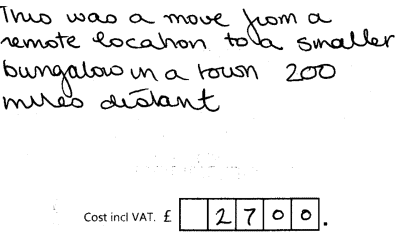 This was a move from a
remote location to a smaller
bungalow in a town 200
miles distant
Cost incl VAT. £ 2700.